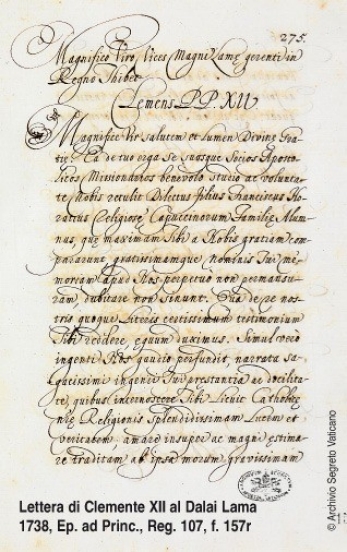 275.
Magnifico Viro, Vices Magni Lamę gerenti in
Regno Thibet
Clemens P.P. XII
Magnifice Vir salutem et lumen Divinę Gra-
tię. Ea de tuo erga Se suosque Socios Aposto-
licos Missionarios benevolo studio ac volunta-
te Nobis retulit Dilectus filius Franciscus Ho-
ratius Religiosę Capuccinorum Familię Alum-
nus, quę maximam Tibi a Nobis gratiam com-
pararunt, gratissimamque, nominis Tui me-
moriam apud Nos perpetuò non permansu-
ram, dubitare non sinunt. Qua de re nos-
tris quoque Literis certissimum testimonium
Tibi reddere, equum duximus. Simul verò
ingenti Nos gaudio perfundit, narrata sa-
gacissimi ingenii Tui prestantia ac docilita-
te, quibus internoscere Tibi licuit Catholi-
cę Religionis Splendidissimam Lucem et
veritatem amare insuper ac magni estima-
re traditam ab ipsa morum gravissimam
Lettera di Clemente XII al Dalai Lama
1738, Ep. ad Princ., Reg. 107, f. 157r
© Archivio Segreto Vaticano